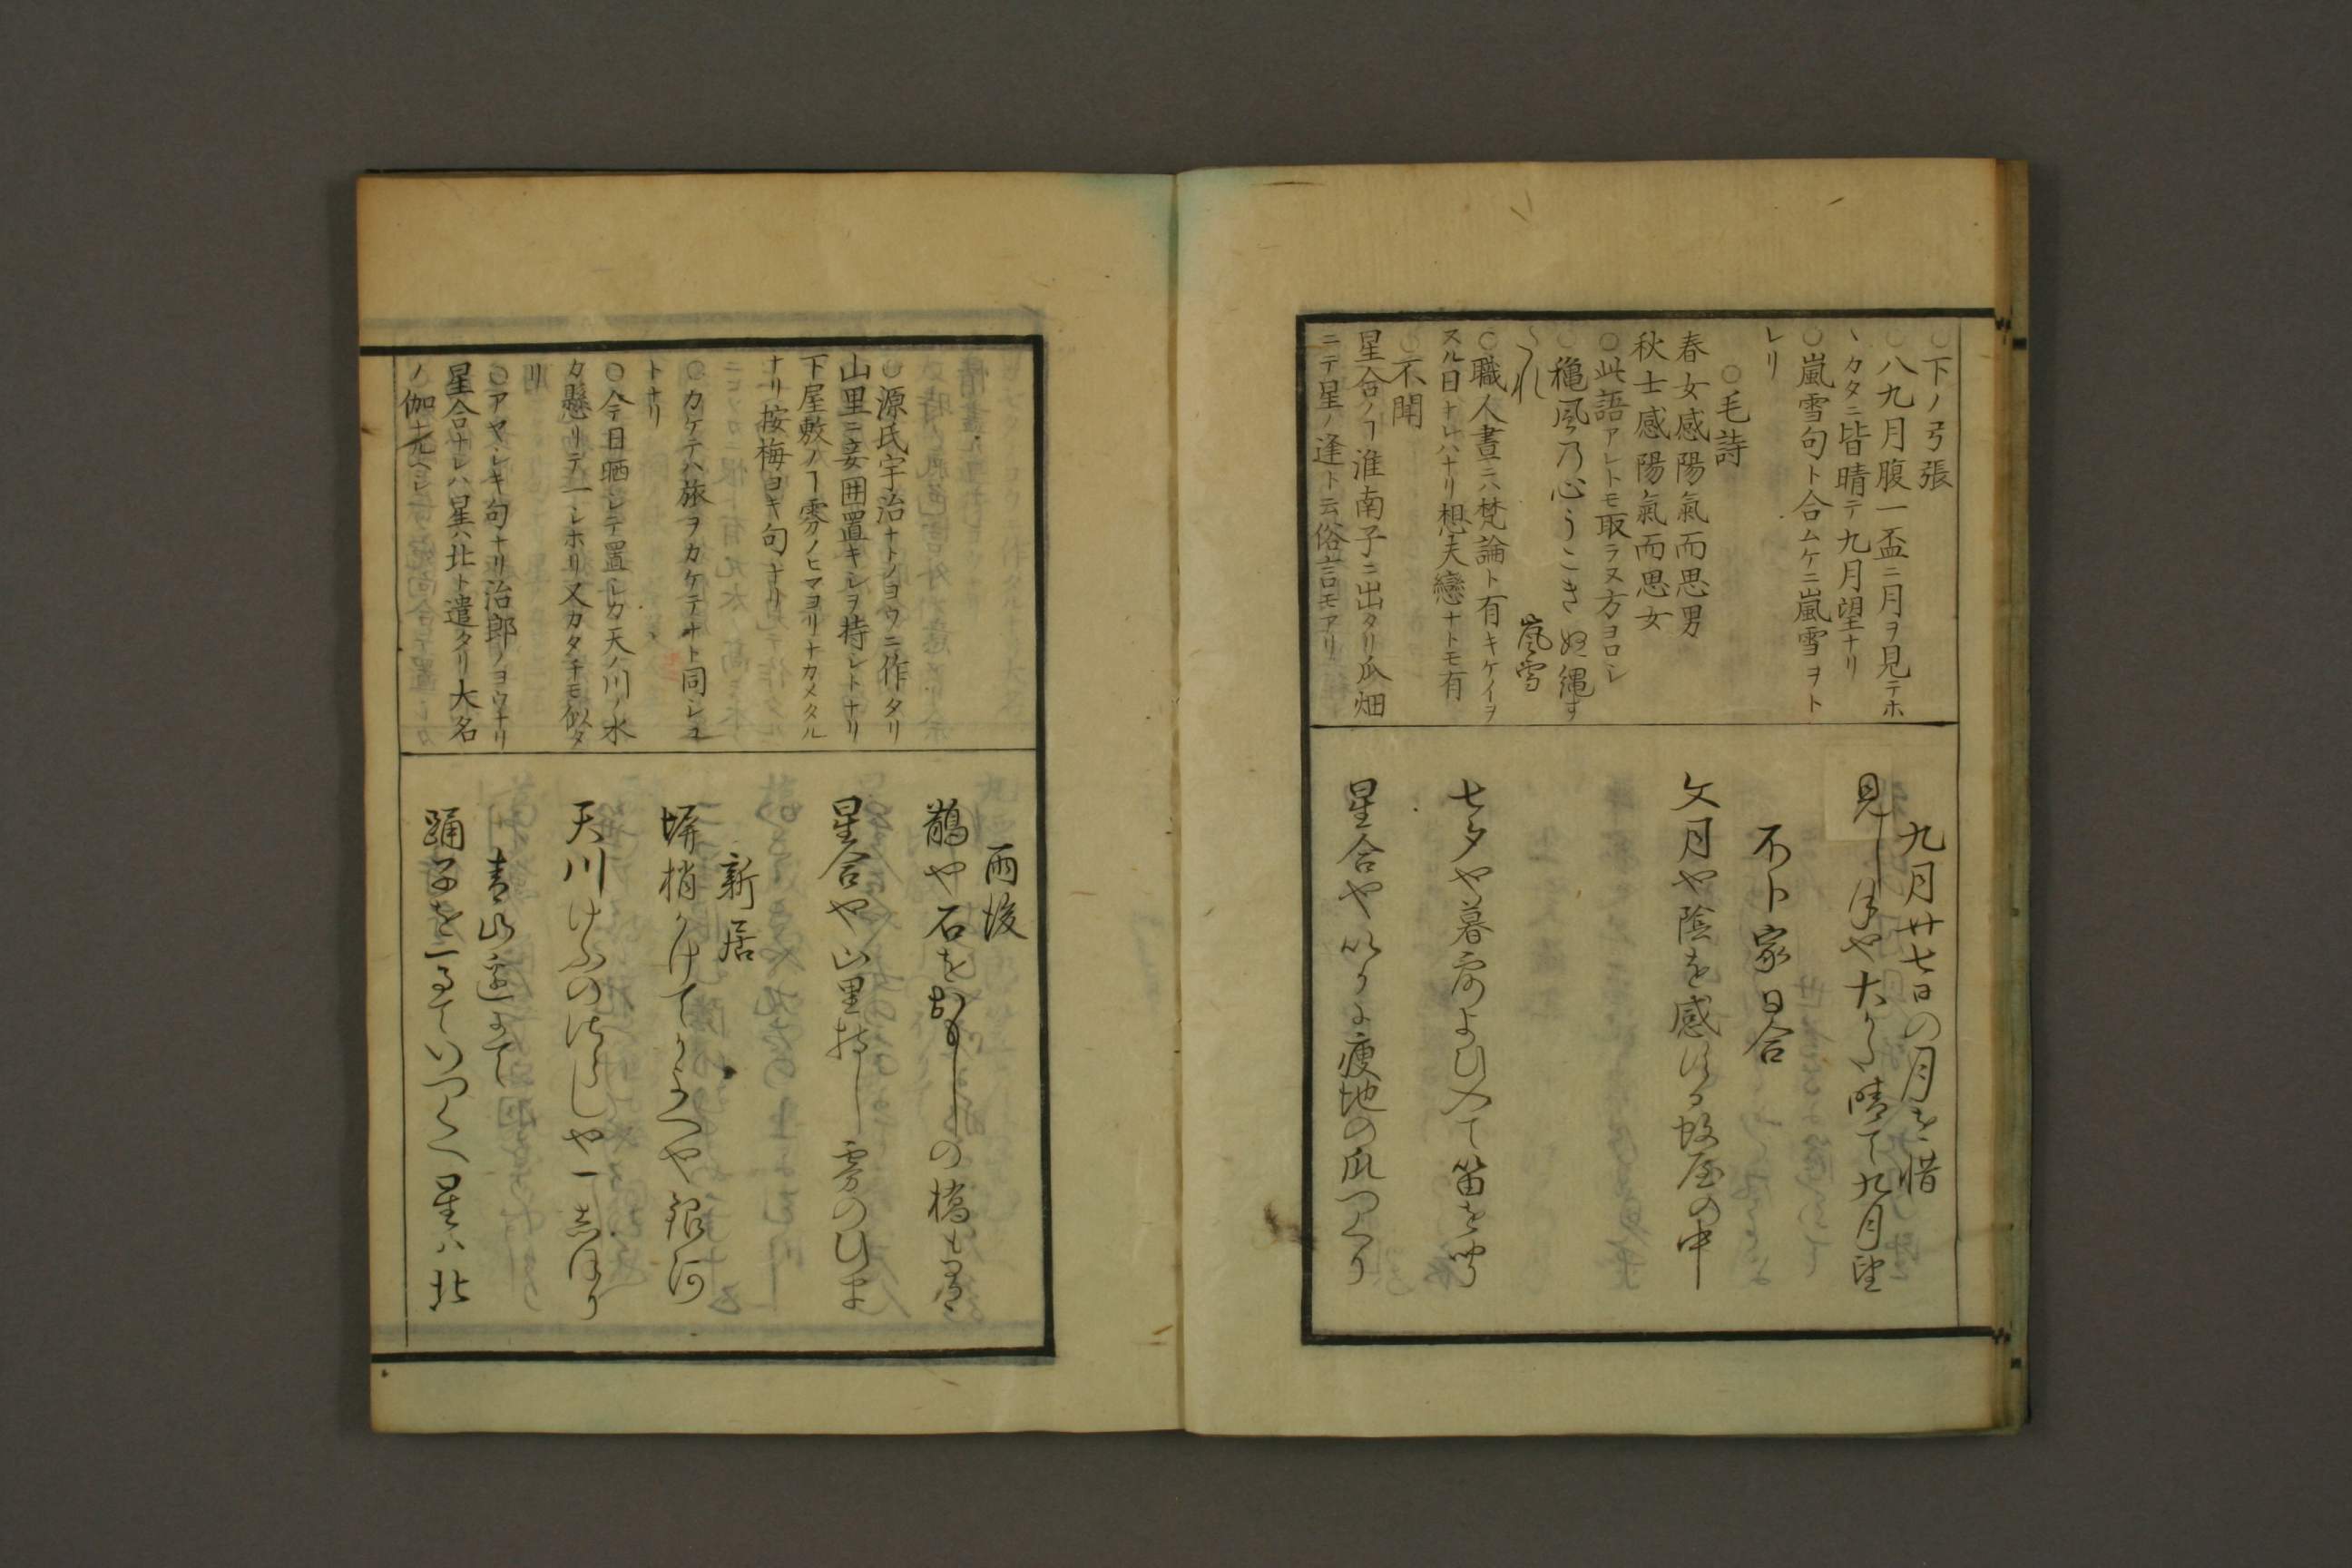 ○下ノ弓張
○八九月腹一盃ニ月ヲ見テホ
ヽカタニ皆晴テ九月望ナリ
○嵐雪句ト合ムケニ嵐雪ヲト
レリ
○毛詩
春女感陽氣而思男
秋士感陽氣而思女
○此語アレトモ取ラヌ方ヨロシ
○穐風乃心うこきぬ縄す
たれ　嵐雪
○職人畫ニハ梵論ト有キケイヲ
スル日ナレハナリ想夫戀ナトモ有
○不聞
星合ノヿ淮南子ニ出タリ瓜畑
ニテ星ノ逢ト云俗言モアリ
九月廿七日の月を惜
見しほや大かた晴て九月望
不卜家日合
文月や陰を感ずる蚊屋の中
七夕や暮露よひ入て笛を聞
星合やいかに痩地の瓜つくり
○源氏宇治ナトノヨウニ作タリ
山里ニ妾囲置キシヲ持シトナリ
下屋敷ノヿ雰ノヒマヨリナカメタル
ナリ按梅ヨキ句ナリ
○カケテハ旅ヲカケテナト同シヿ
トナリ
○今日晒シテ置シカ天ノ川ノ水
タ懸リテ一シホリ又カタチモ似タ
リ
○アヤシキ句ナリ治郎ノヨウナリ
星合ナレハ星ハ北ト遣タリ大名
ノ伽
雨後
鵲や石をおもしの橋も
星合や山里持し雰のひま
新居
塀梢かけてかよへや銀河
天川けふのさらしや一しほり
青山邊にて
踊子を
星ハ北